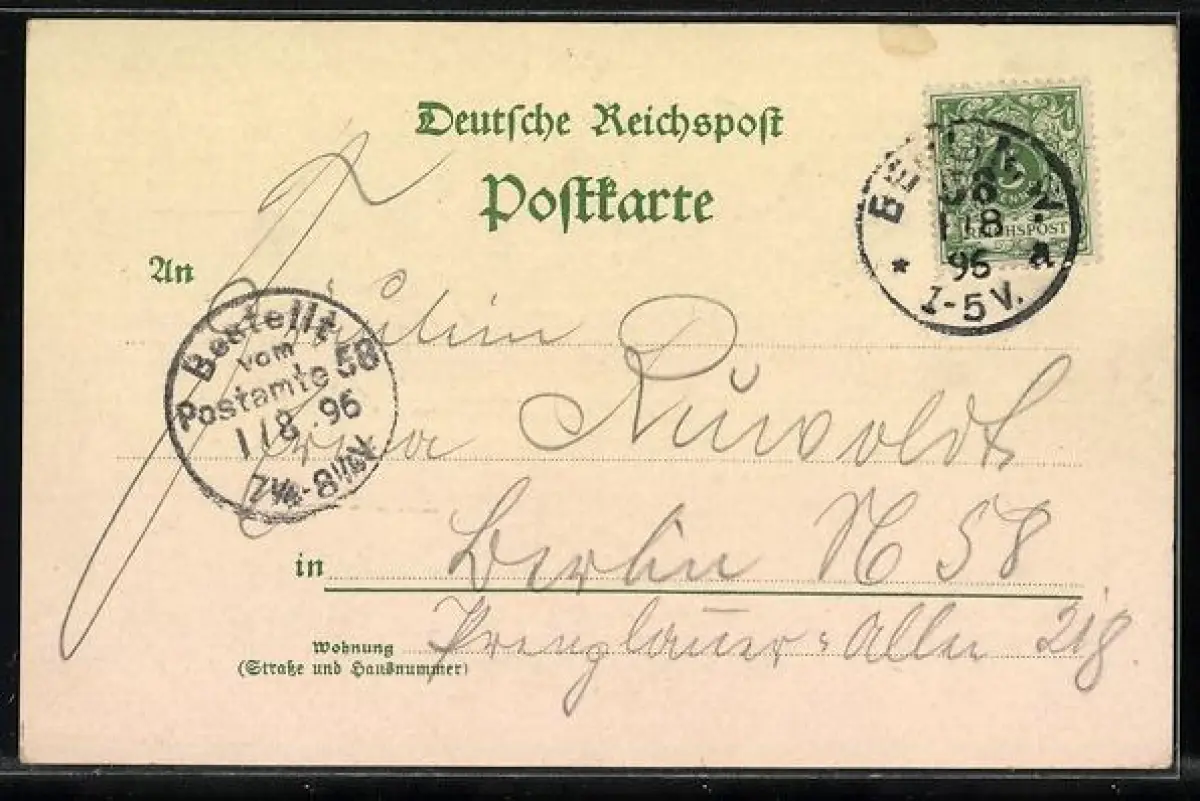 Deutsche Reichspost
Postkarte
BERLIN, N.
58
1/8
96
1-5V.
* a
REICHSPOST
An
Fräulein
Bestellt
vom
Postamte 58
1/8.96
7¼-8½V
Ruvoldt
in Berlin N 58
Wohnung
(Straße und Hausnummer)
Prenzlauer-Allee 218.